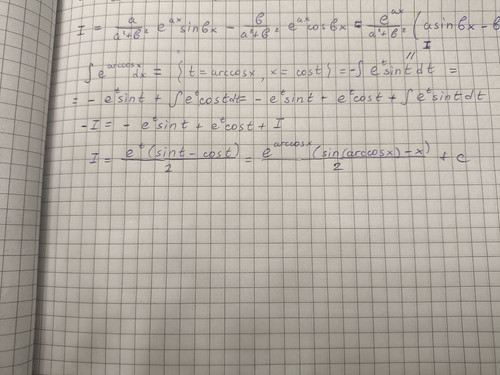 I = a/(a²+b²) e^(ax) sin bx − b/(a²+b²) e^(ax) cos bx = e^(ax)/(a²+b²) (a sin bx − b
I
∫ e^(arccos x) dx = { t = arccos x, x = cos t } = −∫ e^t sin t dt =
= − e^t sin t + ∫ e^t cos t dt = − e^t sin t + e^t cos t + ∫ e^t sin t dt
−I = − e^t sin t + e^t cos t + I
I = e^t (sin t − cos t)/2 = e^(arccos x) (sin(arccos x) − x)/2 + C